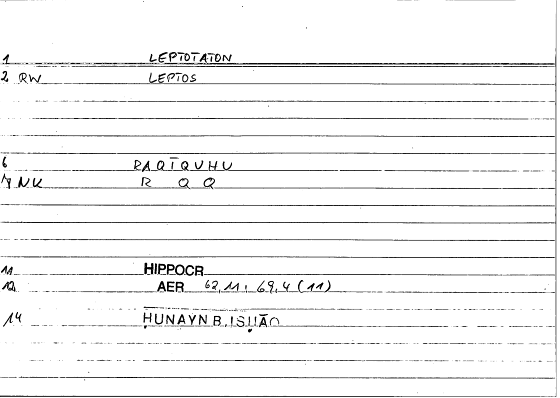 1 LEPTOTATON
2 RW LEPTOS
6 RAQĪQUHU
7 NK R Q Q
11 HIPPOCR
12 AER 62,11; 69,4 (11)
14 ḤUNAYN B. ISḤĀQ